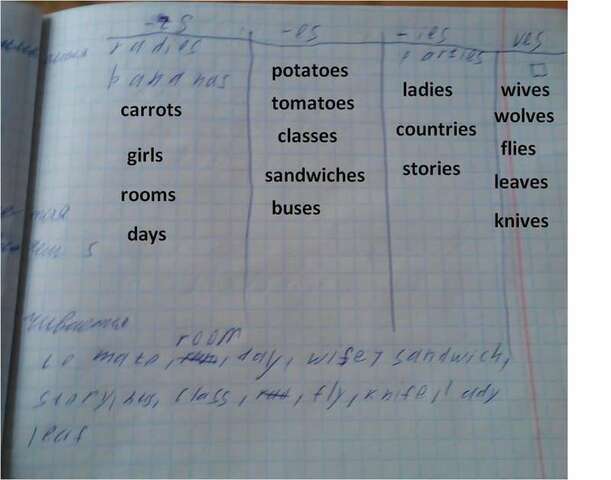 -s -es -ies ves
radies parties
bananas
potatoes
ladies wives
carrots tomatoes wolves
classes countries flies
girls
sandwiches stories leaves
rooms
buses knives
days
s
room
tomato, day, wife, sandwich,
story, bus, class, fly, knife, lady
leaf